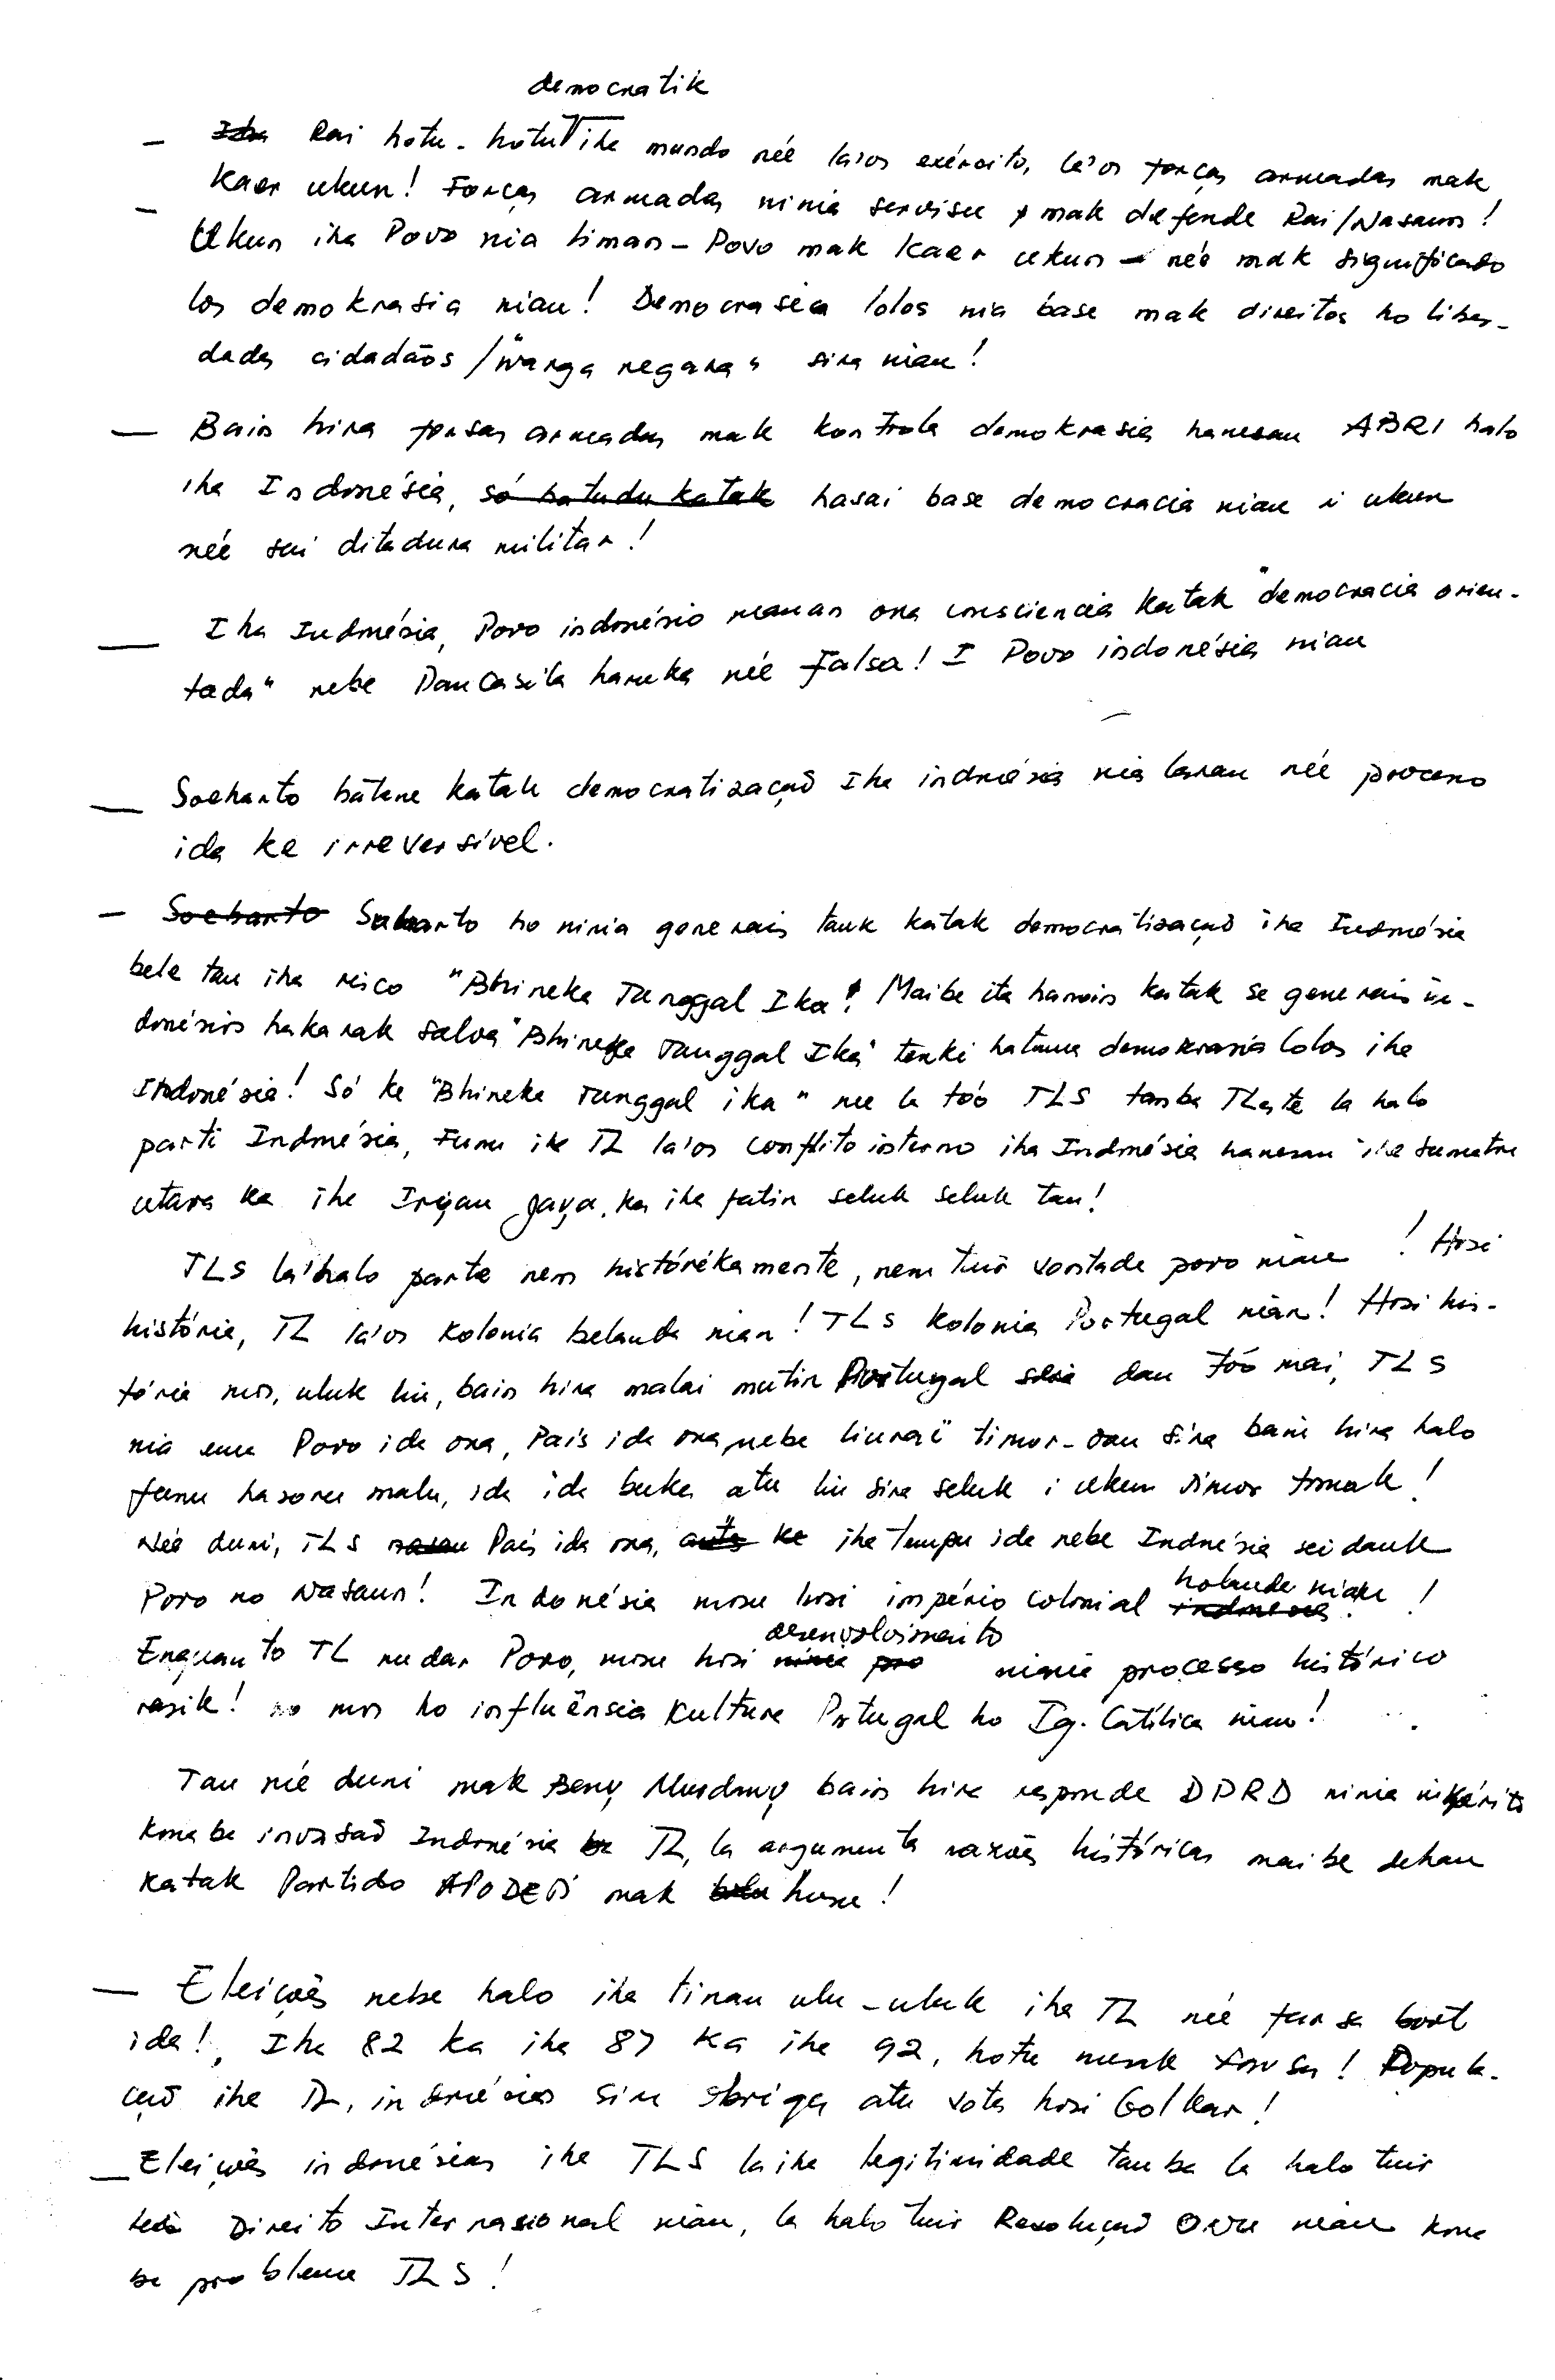 democratik
— Iha Rai hotu-hotu ihe mundo née la'os exército, la'os forças armadas mak
kaer ukun! Forças armadas ninia servisu mak defende Rai/Nasaun!
— Ukun iha Povo nia liman - Povo mak kaer ukun - née mak significado
los demokrasia nian! Democrasia lolos nia base mak direitos ho liber-
dades cidadãos / "warga negara" sira nian!
— Bain hira forsas armadas mak kontrola demokrasia hanesan ABRI halo
iha Indonésia, só hatudu katak hasai base democracia nian i ukun
née sai ditadura militar!
— Iha Indonésia, Povo indonésio manan ona consciencia katak "democracia orien-
tada" nebe Pancasila haruka née falsa! I Povo indonésia nian
— Soeharto hatene katak democratização Iha indonésia nia laran née processo
ida ke irreversível.
— Soeharto Suharto ho ninia generais tauk katak democratização iha Indonésia
bele tau iha risco "Bhineka Tunggal Ika"! Maibe ita hanoin katak se generais in-
donésios hakarak salva "Bhineka Tunggal Ika" tenki hatama demokrasia lolos iha
Indonésia! Só ke "Bhineka Tunggal ika" nee la tóo TLS tanba TLeste la halo
parti Indonésia, Funu iha TL la'os conflito interno iha Indonésia hanesan iha Sumatra
utara ka iha Irian Jaya, ka iha fatin seluk seluk tan!
TLS la halo parte nem históricamente, nem tuir vontade povo nian! Hosi
história, TL la'os kolonia belanda nian! TLS kolonia Portugal nian! Hosi his-
tória mos, uluk liu, bain hira malai mutin Portugal dau tóo mai, TLS
nia emu Povo ida ona, País ida ona, nebe liurai timor-oan sira bain hira halo
funu hasoru malu, ida ida buka atu liu sira seluk i ukun Timor tomak!
Née duni, TLS nasau País ida ona, iha tempu ida nebe Indonésia seidauk
Povo no Nasaun! Indonésia mosu hosi império colonial indonesia holanda nian!
Enquanto TL nudar Povo, mosu hosi ninia pro desenvolvimento ninia processo histórico
rasik! no mos ho influênsia kultura Portugal ho Ig. Católica nian!
Tan née duni mak Beny Murdany bain hira responde DPRD ninia
kona ba invasão Indonésia ba TL, la argumenta razões históricas maibe dehan
katak Partido APODETI mak husu!
— Eleições nebe halo iha tinan ulu-uluk iha TL née farsa boot
ida! Iha 82 ka iha 87 ka iha 92, hotu farsa! Popula-
ção iha TL, indonésios sira obriga atu vota hosi Golkar!
— Eleições indonésias iha TLS laiha legitimidade tanba la halo tuir
Direito Internasional nian, la halo tuir Resolução ONU nian kona
ba problema TLS!